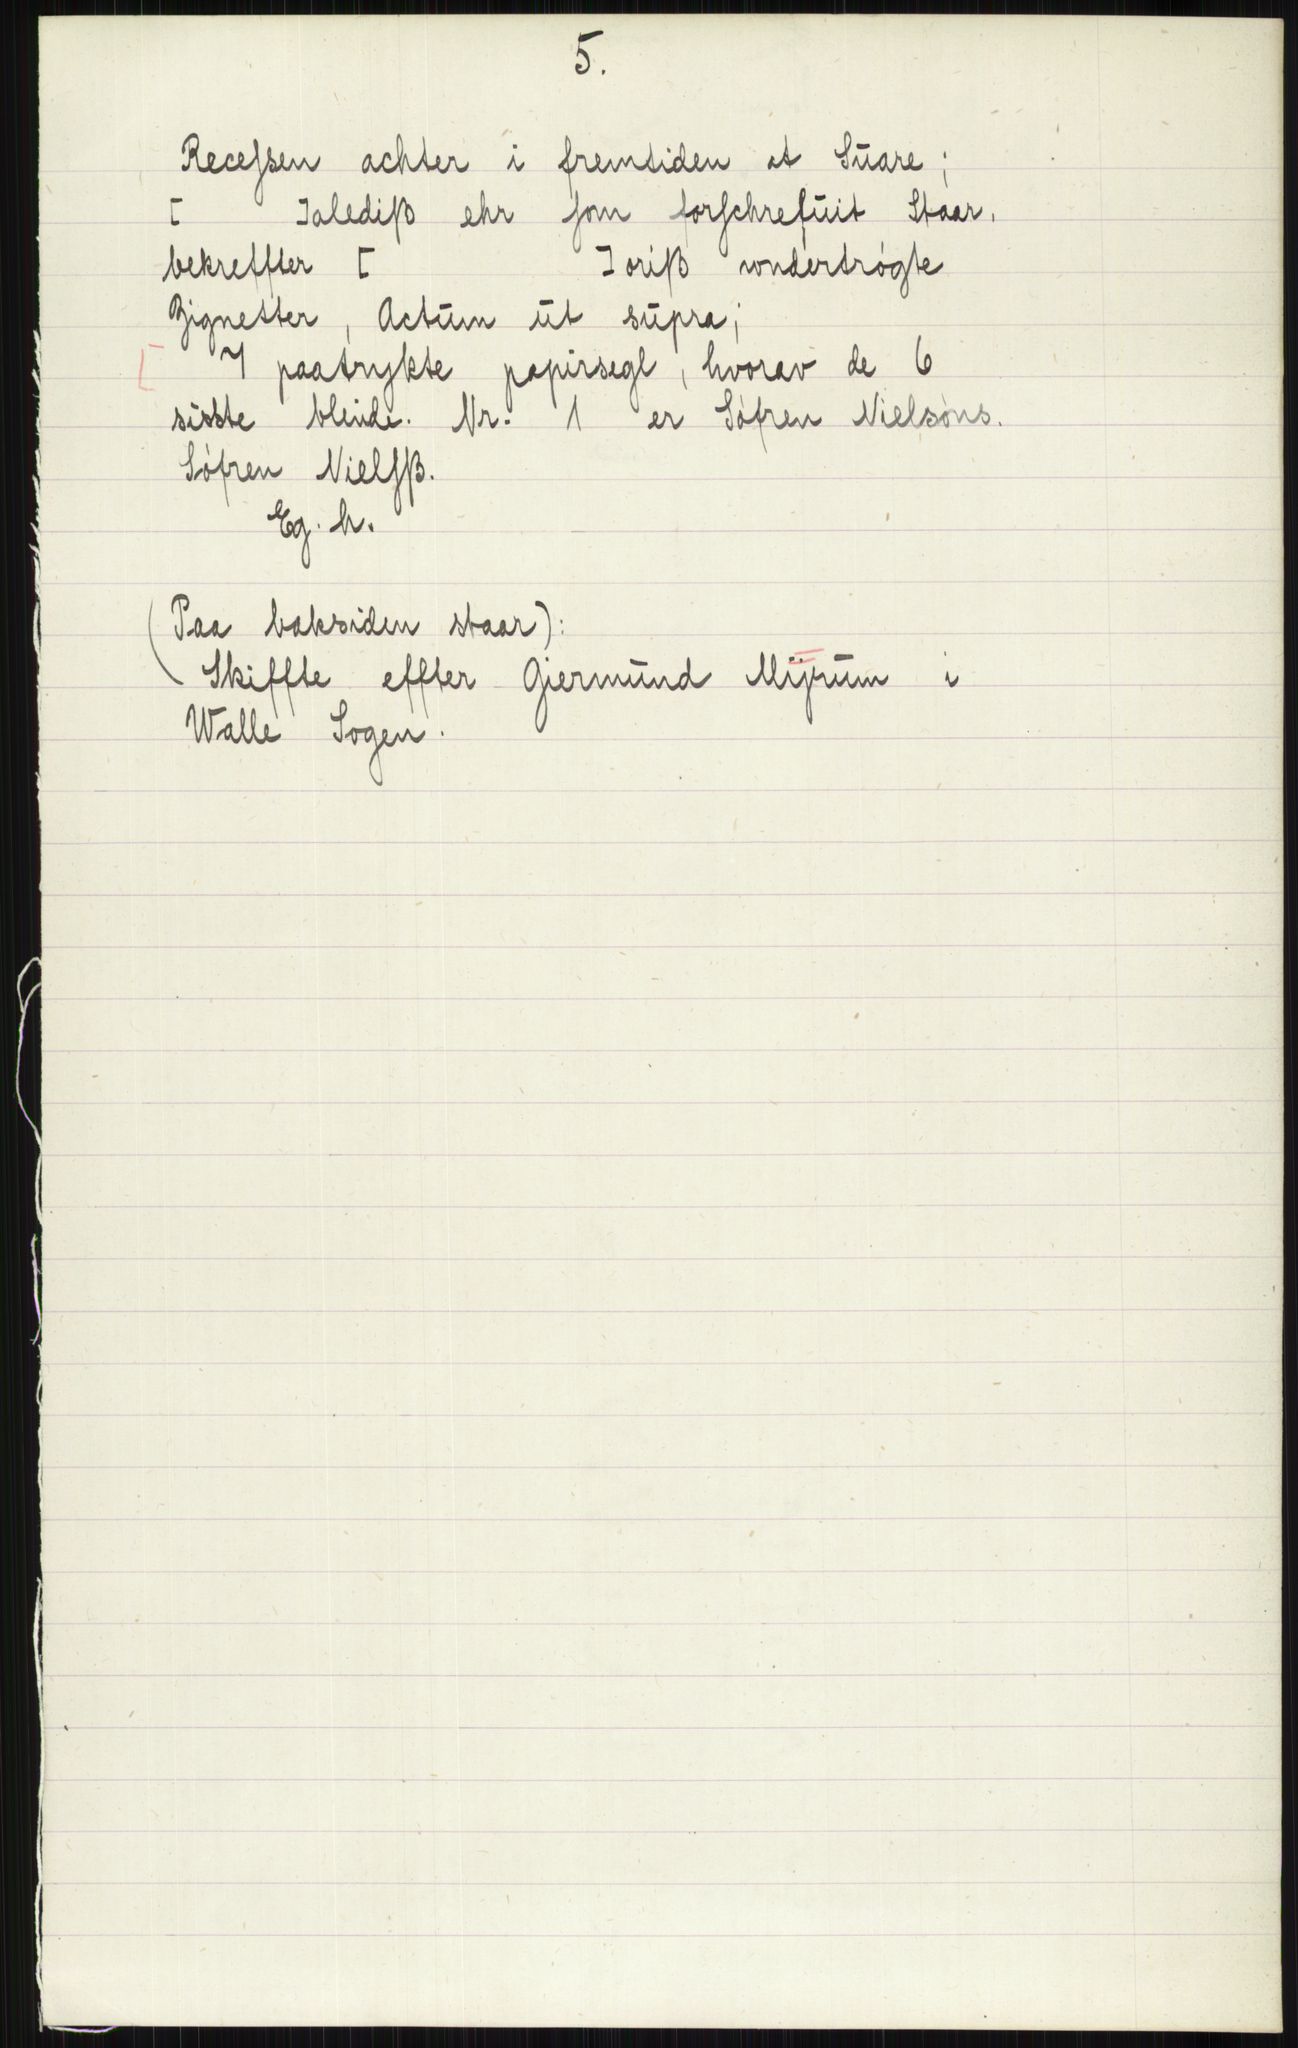 5.
Recessen achter i fremtiden at Sŭare;
[ ]alediß ehr som forschrefŭit Staar,
bekreffter [ ]oriß wndertrøgte
Zignetter, Actŭm ŭt sŭpra;
[ 7 paatrykte papirsegl, hvorav de 6
sisste blinde. Nr. 1 er Søfren Nielsøns.
Søfren Nielsß.
Eg. h.
(Paa baksiden staar):
Skiffte effter Giermŭnd Mÿrŭm i
Walle Sogen.